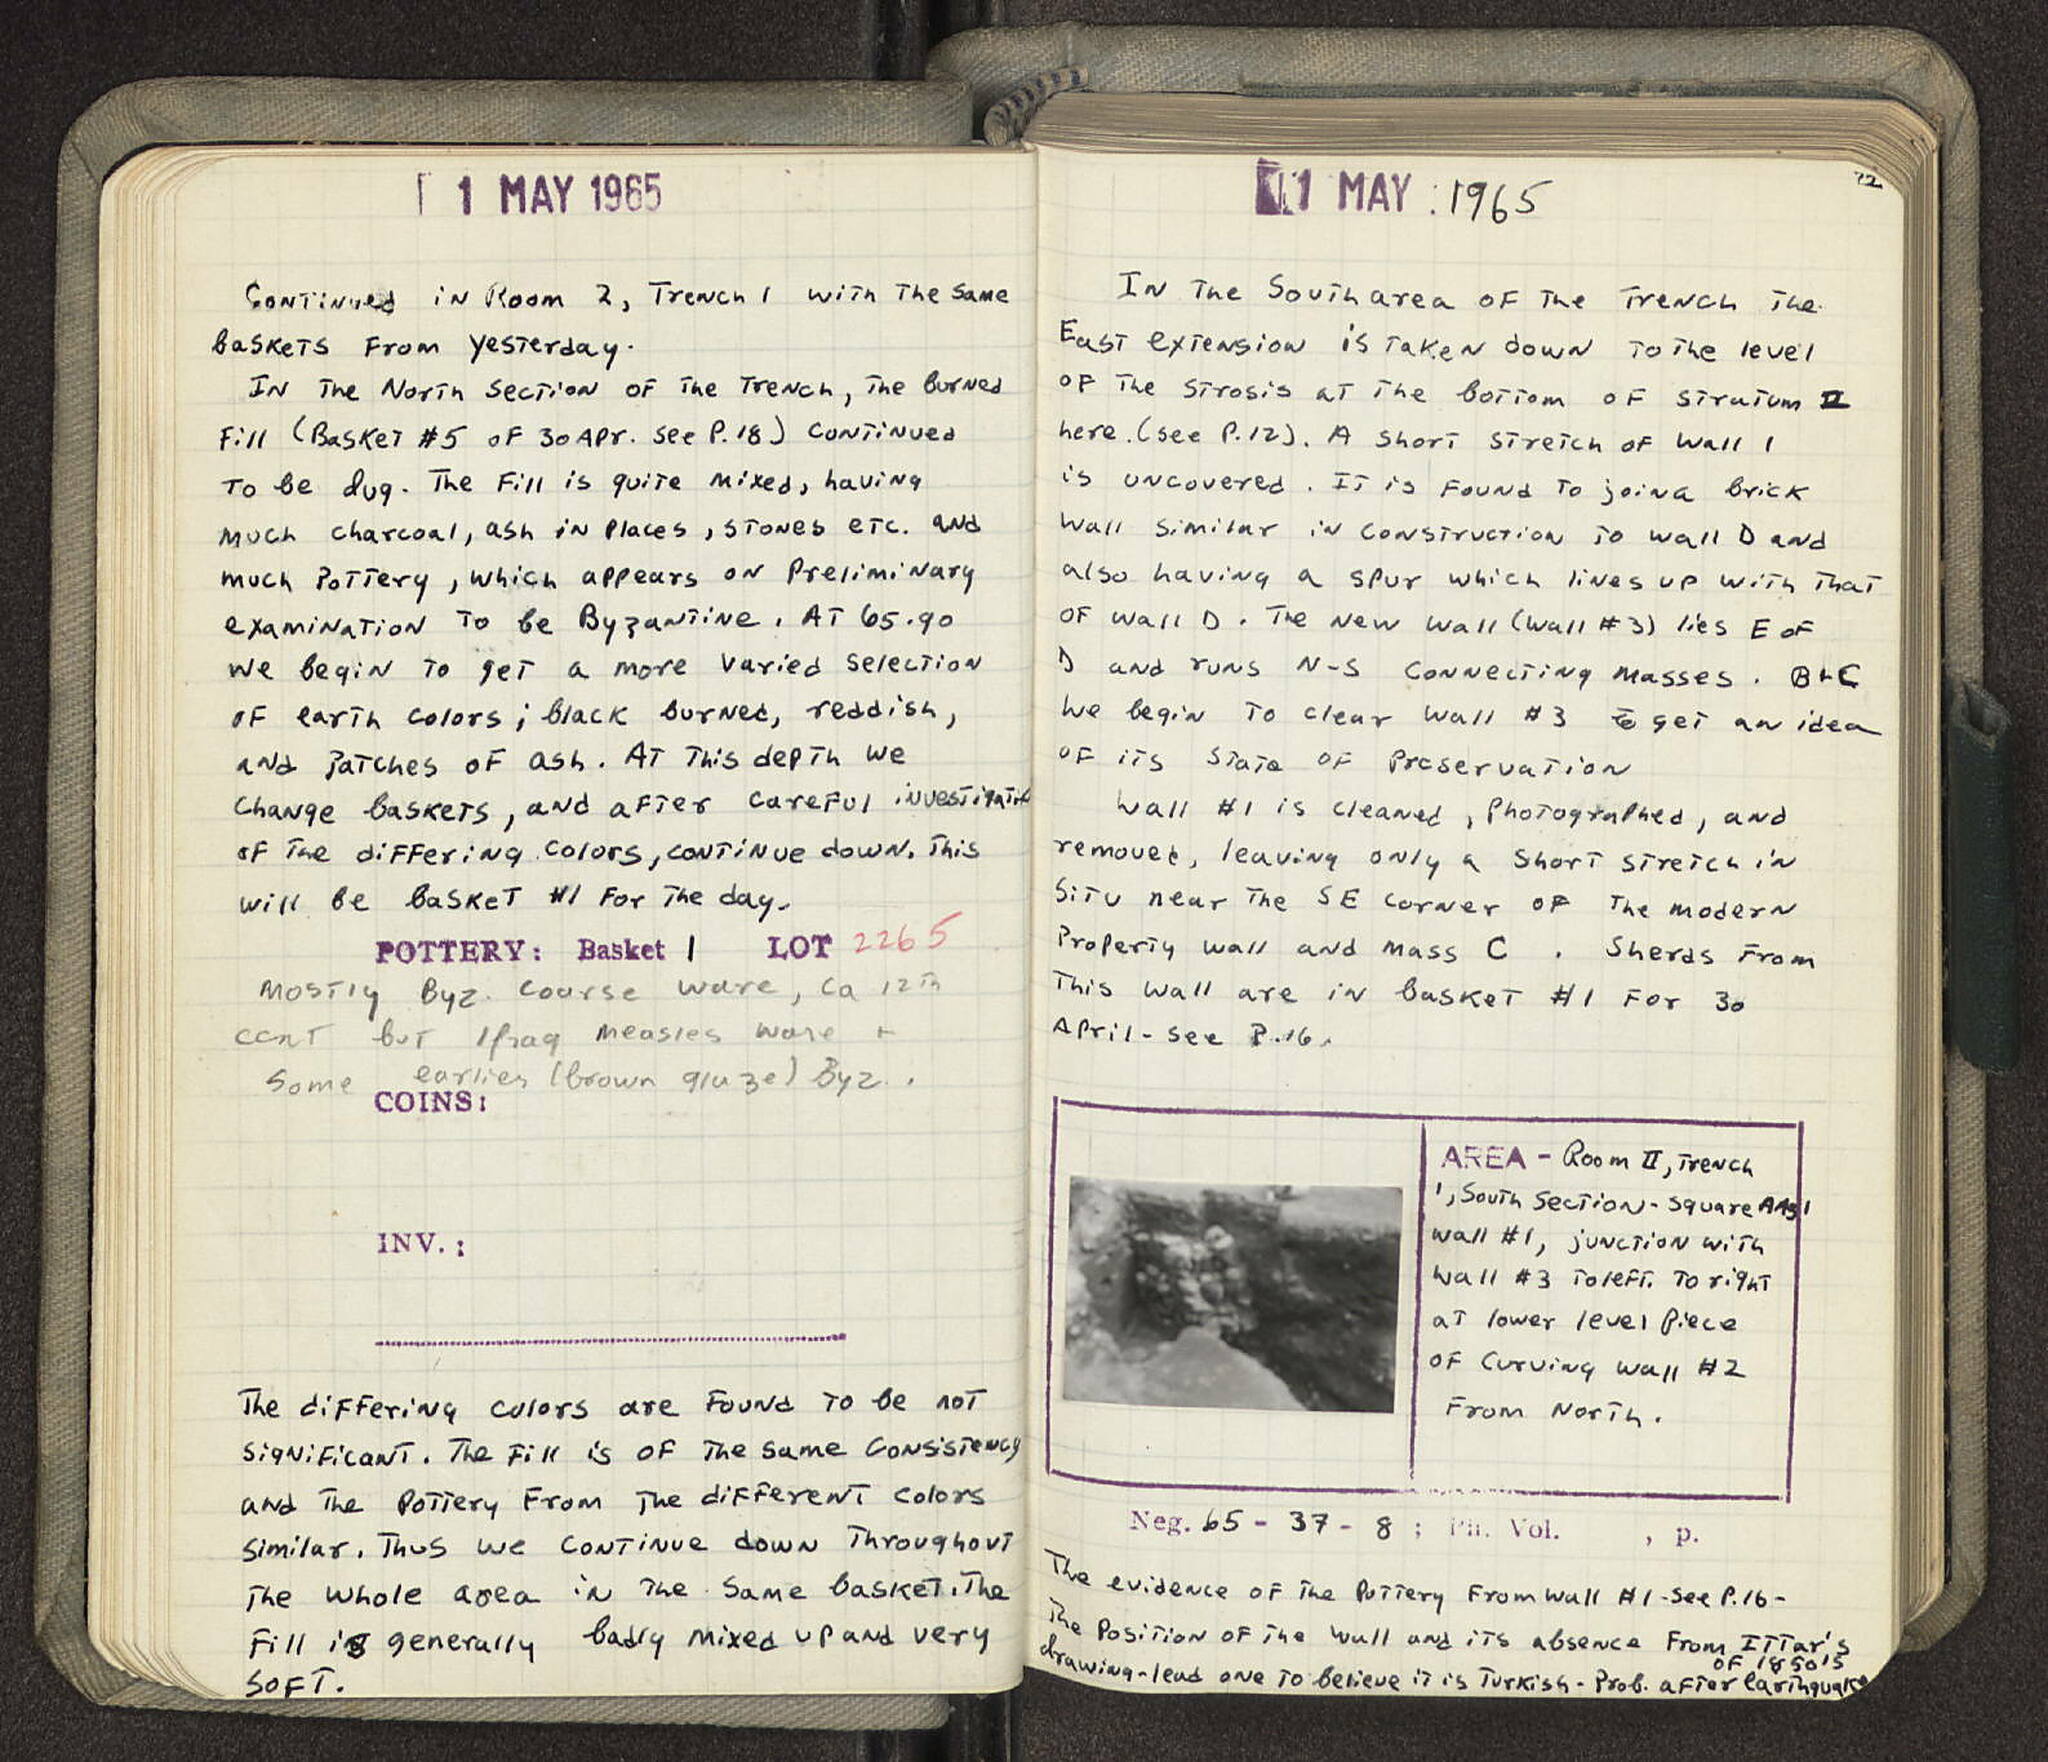 1 MAY 1965
Continued in Room 2, Trench 1 with the same
baskets from yesterday.
In the North section of the trench, the burned
fill (Basket #5 of 30 Apr. see P.18) continued
to be dug. The fill is quite mixed, having
much charcoal, ash in places, stones etc. and
much pottery, which appears on preliminary
examination to be Byzantine. At 65.90
we begin to get a more varied selection
of earth colors; black burned, reddish,
and patches of ash. At this depth we
change baskets, and after careful investigation
of the differing colors, continue down. This
will be basket #1 for the day.
POTTERY: Basket 1 LOT 2265
Mostly Byz. coarse ware, ca 12th
cent but 1 frag measles ware +
some earlier (brown glaze) Byz.
COINS:
INV.:
The differing colors are found to be not
significant. The fill is of the same consistency
and the pottery from the different colors
similar. Thus we continue down throughout
the whole area in the same basket. The
fill is generally badly mixed up and very
soft.
1 MAY 1965
In the South area of the trench the
East extension is taken down to the level
of the strosis at the bottom of stratum II
here. (see P.12). A short stretch of wall 1
is uncovered. It is found to join a brick
wall similar in construction to wall D and
also having a spur which lines up with that
of wall D. The new wall (wall #3) lies E of
D and runs N-S connecting masses. B+C
We begin to clear wall #3 to get an idea
of its state of preservation
Wall #1 is cleaned, photographed, and
removed, leaving only a short stretch in
situ near the SE corner of the modern
property wall and mass C. Sherds from
this wall are in basket #1 for 30
April - see P.16.
AREA - Room II, Trench
1, South Section - Square
wall #1, junction with
wall #3 to left. To right
at lower level piece
of curving wall #2
From North.
Neg. 65 - 37 - 8 ; Ph. Vol. , p.
The evidence of the pottery from wall #1 - see P.16 -
the position of the wall and its absence from Ittar's
of 1850's
drawing - lead one to believe it is Turkish - Prob. after Earthquake